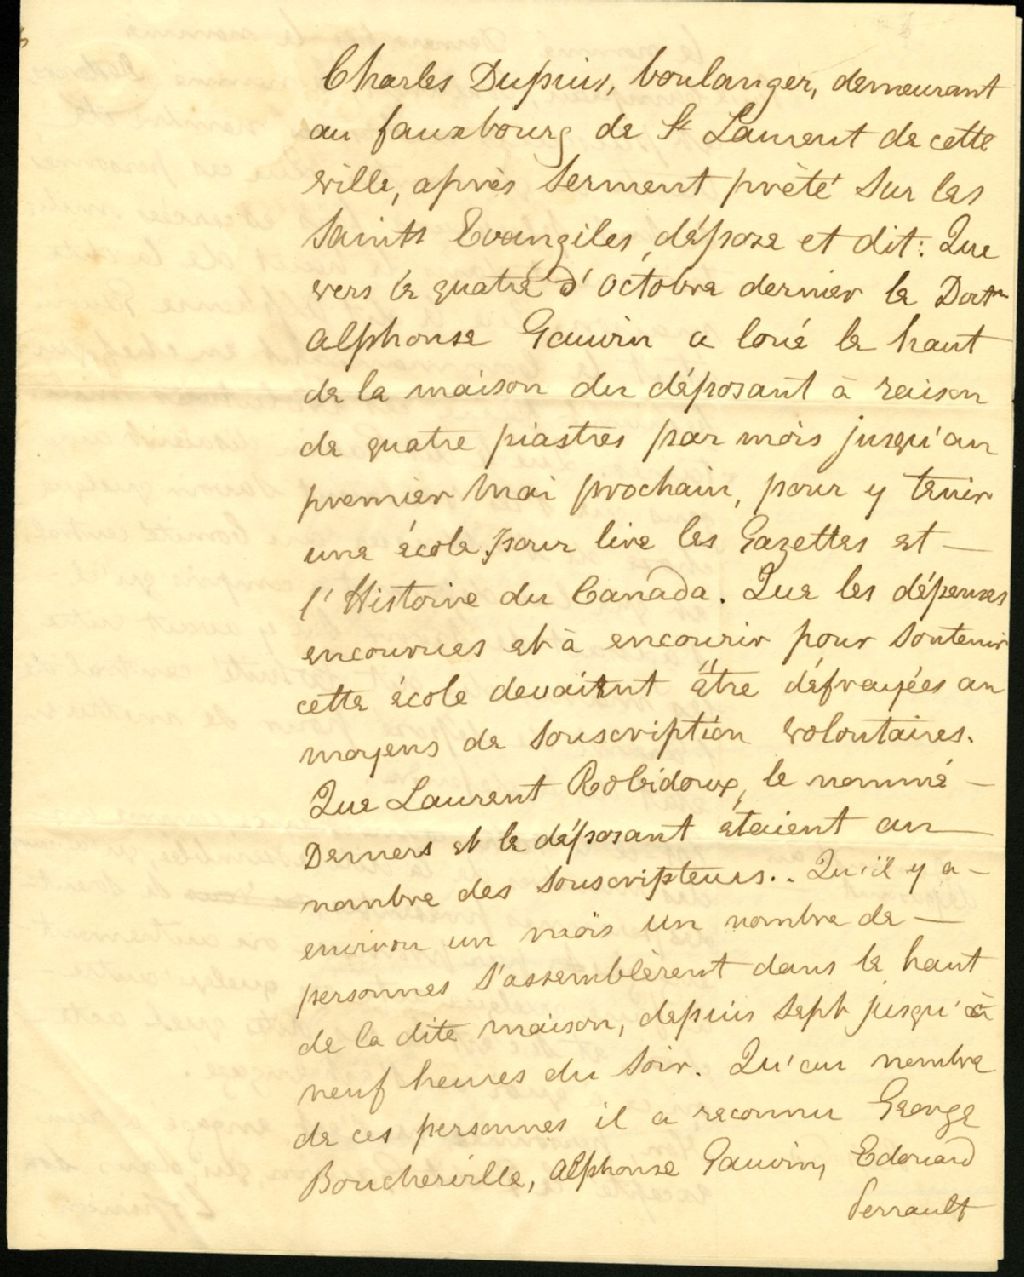 Charles Dupuis, boulanger, demeurant
au fauxbourg de St Laurent de cette
ville, après serment prêté sur les
Saints Evangiles, dépose et dit: Que
vers le quatre d'octobre dernier le Doctr
Alphonse Gauvin a loué le haut
de la maison du déposant à raison
de quatre piastres par mois jusqu'au
premier Mai prochain, pour y tenir
une école pour lire les Gazettes et —
l'Histoire du Canada. Que les dépenses
encourues et à encourir pour soutenir
cette école devaient être défrayées au
moyens de souscription volontaires.
Que Laurent Robidoux, le nommé —
Demers et le déposant étaient au —
nombre des souscripteurs.. Qu'il y a —
environ un mois un nombre de —
personnes s'assemblèrent dans le haut
de la dite maison, depuis sept jusqu'à
neuf heures du soir. Qu'au nombre
de ces personnes il a reconnu George
Boucherville, Alphonse Gauvin, Edouard
Perrault